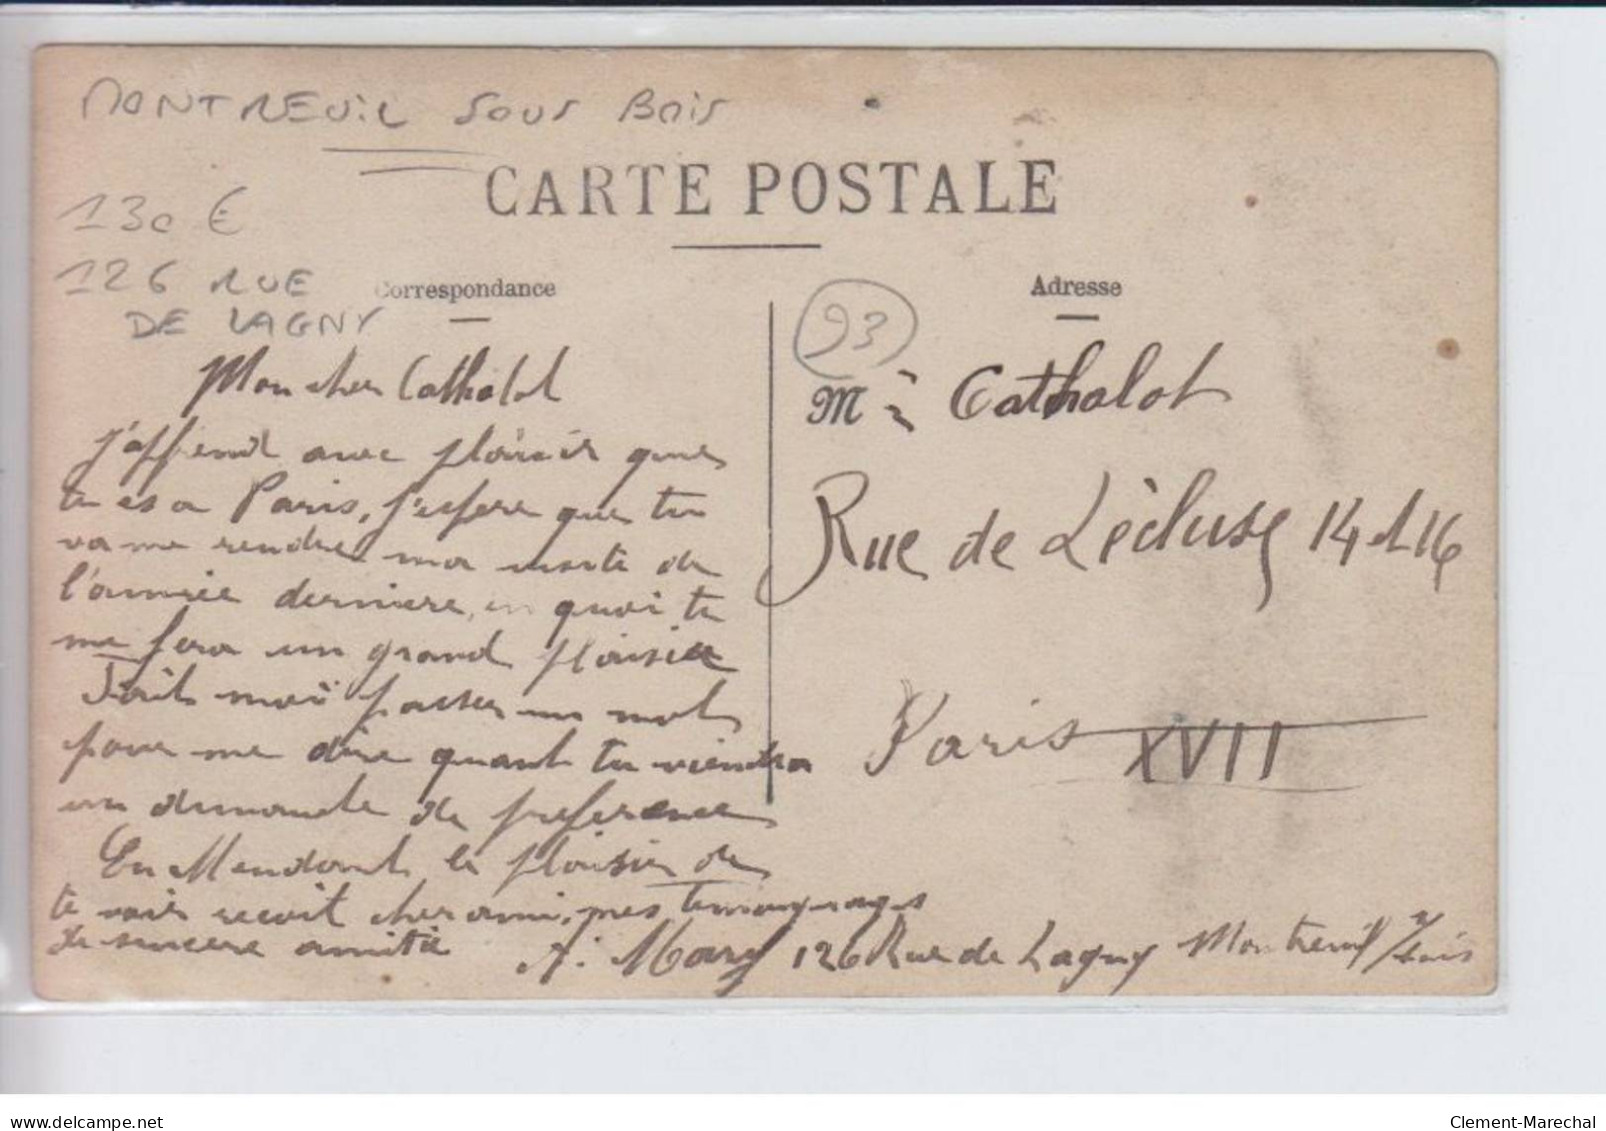 MONTREUIL SOUS BOIS
CARTE POSTALE
130 €
126 RUE
DE LAGNY
Correspondance
Mon cher Cathalot
J'apprend avec plaisir que
tu es a Paris, j'espere que tu
va me rendre ma visite de
l'année derniere, en quoi tu
me fera un grand plaisir
Fait moi passer un mot
pour me dire quant tu viendra
un dimanche de preference
En Attendant le plaisir de
te voir recoit cher ami, mes temoignages
de sincere amitié
A. Mary 126 Rue de Lagny Montreuil s/Bois
Adresse
93
Mr Cathalot
Rue de Lècluse 14 et 16
Paris XVII
delcampe.net
Clement-Marechal